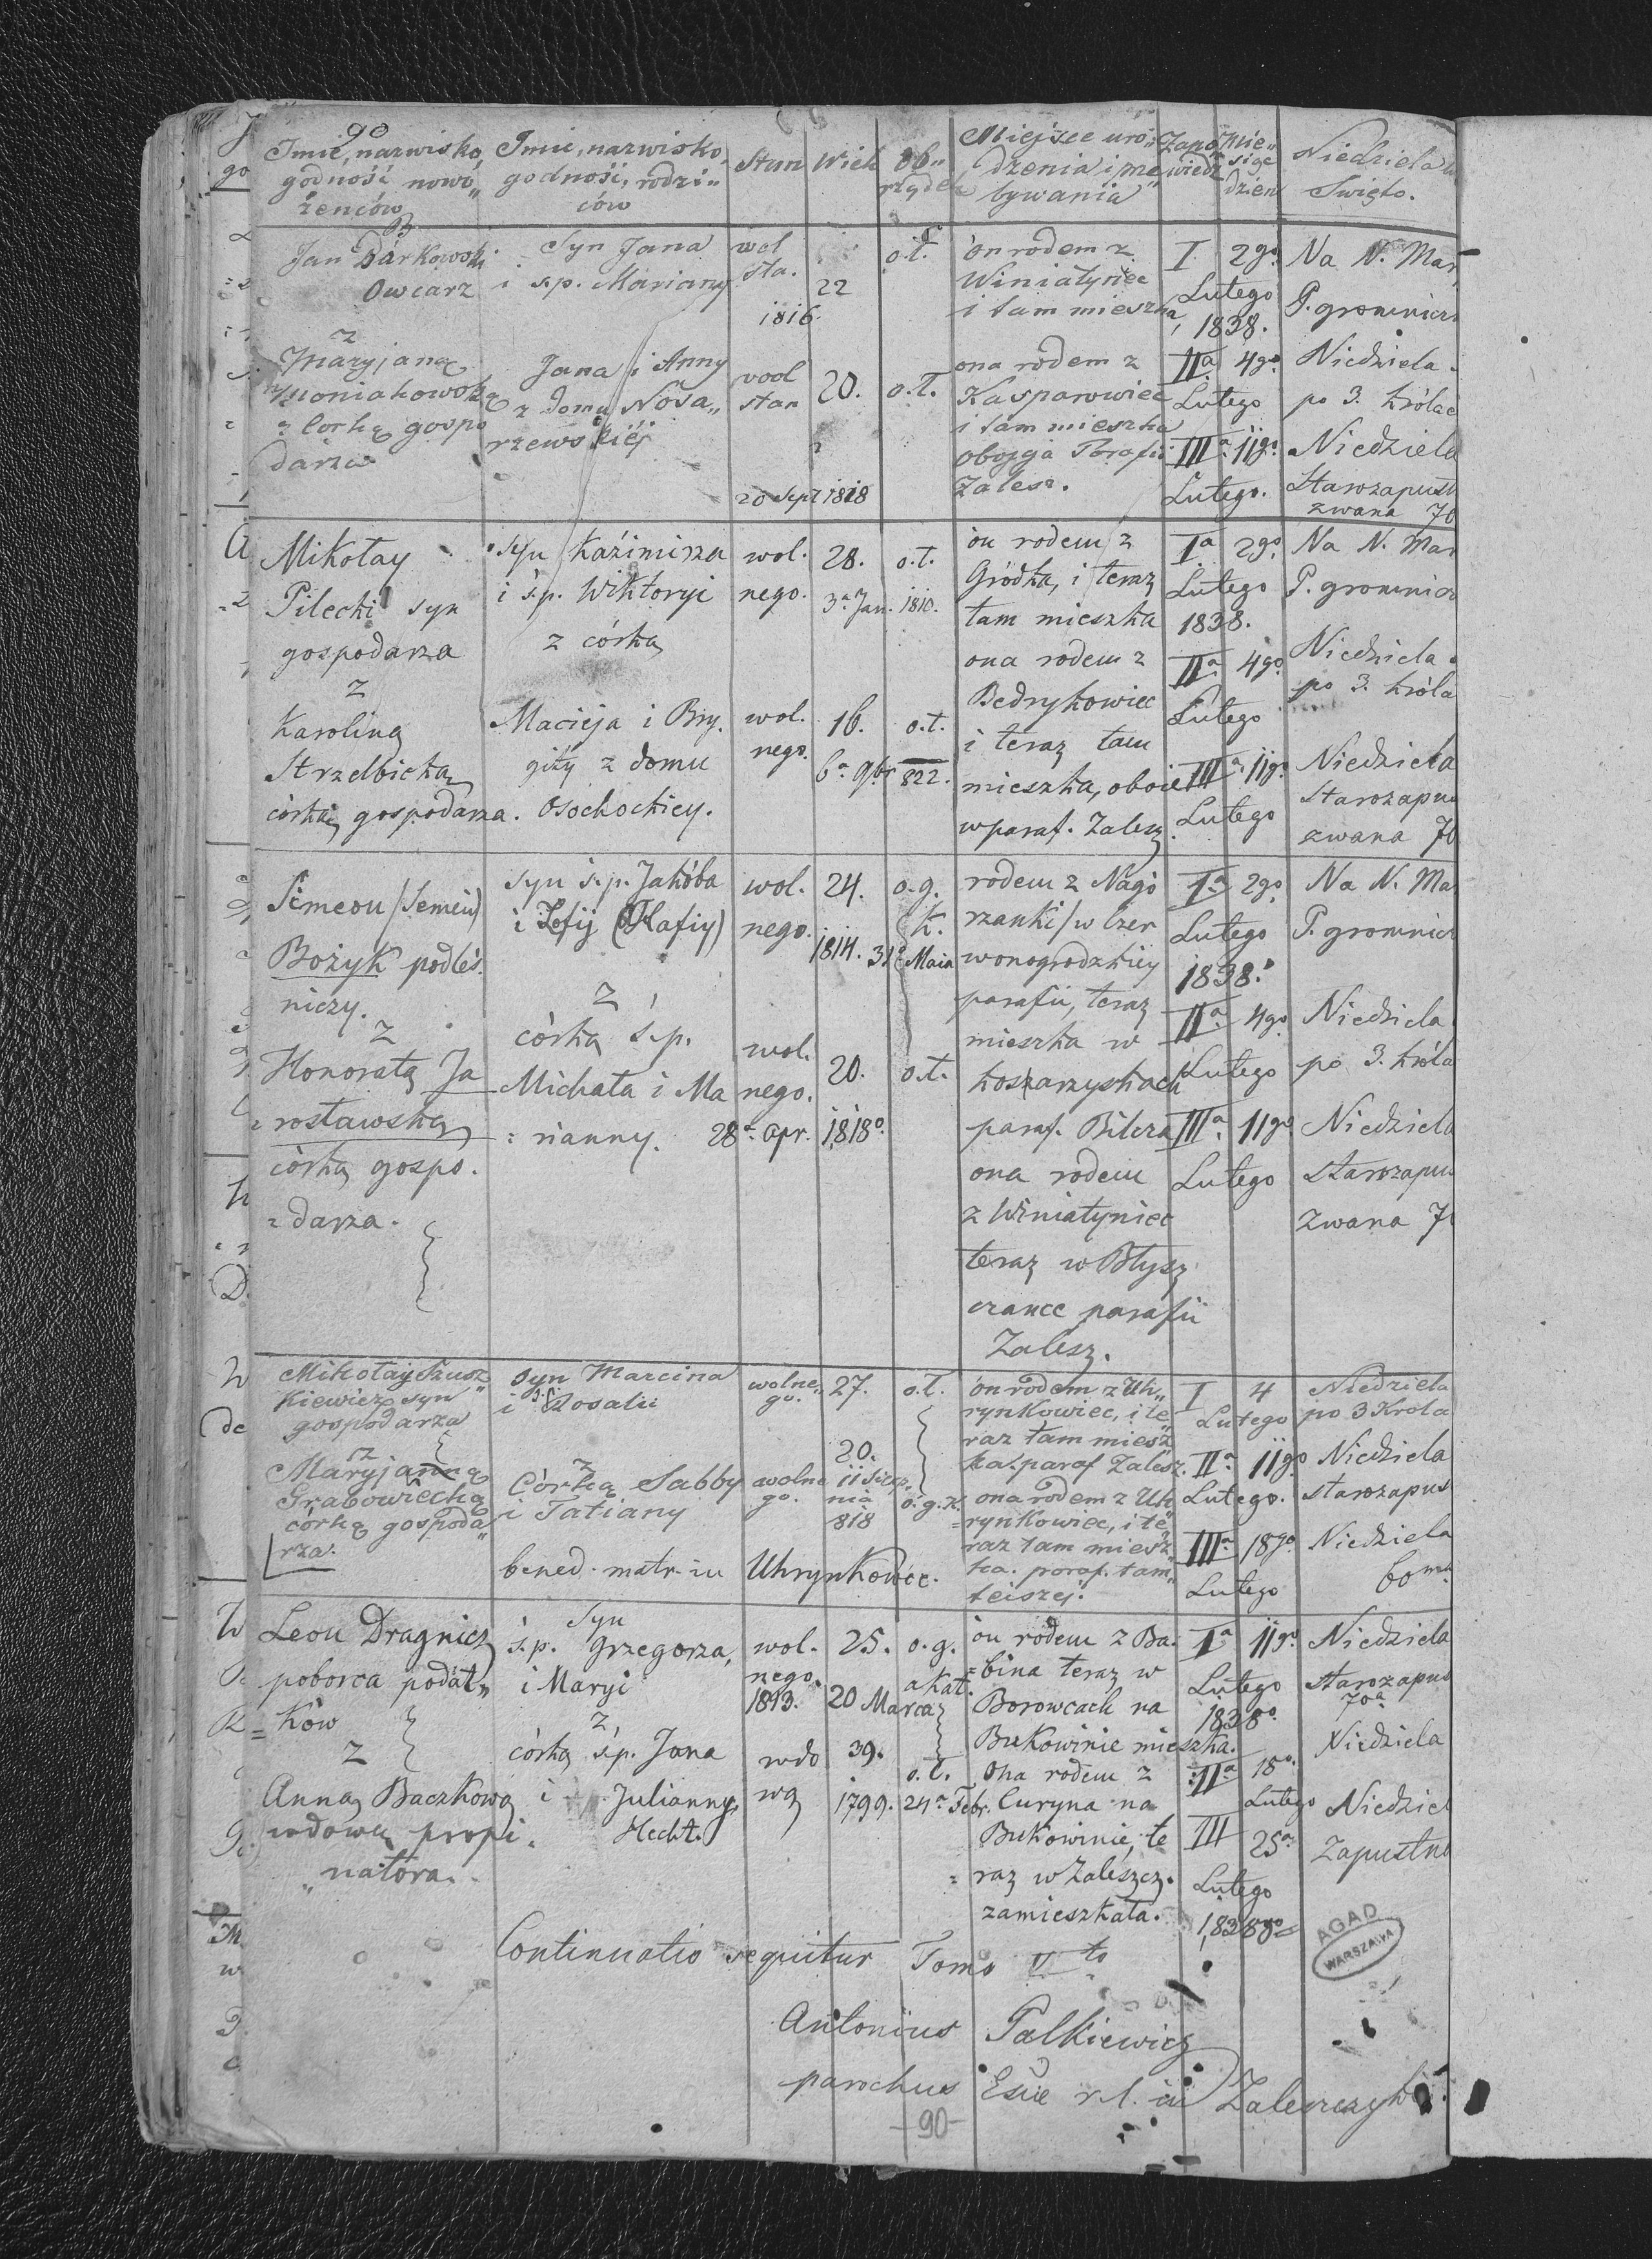 90
Imie, nazwisko, godność nowo„ żenców
Imie, nazwisko, godność, rodzi„ ców
Stan
Wiek
Ob„ rządek
Miejsce uro„ dzenia i mie„ bywania
Zapo„ wiedz
Mie„ siąc dzien
Niedziela
Swięto.
Jan Barkowski
Owcarz
z
Maryjaną
= Corką gospo
darza
Syn Jana
i s.p. Mariany
Jana i Anny
z Domu Nosa„
rzewskiéj
wol
sta.
1816.
wol
stan
20 Sept 1818
22
20.
o.t.
o.t.
ón rodem z
Winiatyniec
i tam mieszka
ona rodem z
Kasparowiec
i tam mieszka
obojga Parafii
Zalesz.
I 2go
Lutego
1838.
IIa 4go
Lutego
IIIa 11go
Lutego.
Na N. Mar
P. gromnicz
Niedziela
po 3. Królac
Niedziela
Starozapust
zwana 70
Mikołay
Pilecki syn
gospodarza
z
Karoliną
Strzelbicką
córką gospodarza.
syn Kaźimirza
i ś.p. Wiktoryi
z córką
Macieja i Bry.
gity z domu
Osochockiey.
wol. nego.
28. o.t.
3a Jan. 1810.
wol. nego.
16. o.t.
6a 9br 822.
ón rodem z
Gródka, i teraz
tam mieszka
ona rodem z
Bedrykowiec
i teraz tam
mieszka, oboie
w paraf. Zalesz.
Ia 2go
Lutego
1838.
IIa 4go
Lutego
IIIa 11go
Lutego
Na N. Mar
P. gromnicz
Niedziela
po 3. króla
Niedziela
Starozapus
zwana 70
Simeon (Semen)
Bożyk podleś.
niczy.
z
Honoratą Ja
= rosławską
córką gospo.
= darza.
syn s.p. Jakóba
i Zofij
z
córką ś.p.
Michała i Ma
= rianny.
wol. nego.
24. o.g. k.
1814. 31a Maia
wol. nego.
20. o.t.
28a apr. 1818o.
rodem z Nagó
rzanki / w Czer
wonogrodzkiey
parafii, teraz
mieszka w
koszarzyskach
paraf. Bilcza
ona rodem
z Winiatyniec
teraz w Błysz
czance parafii
Zalesz.
Ia 2go
Lutego
1838.
IIa 4go
Lutego
IIIa 11go
Lutego
Na N. Ma
P. gromnicz
Niedziela
po 3. króla
Niedziela
starozapus
zwana 7
Mikołay Szusz„
kiewicz syn
gospodarza
z
Maryjanną
Grabowiecką
córką gospoda„
rza.
syn Marcina
i s.p. Rosalii
z
Córką Sabby
i Tatiany
bened. matr. in Uhrynkowce.
wolne„ go.
27. o.t.
wolne go.
20.
11 Sierp„ nia 818
o.g.k.
ón rodem z Uh„
rynkowiec, i te„
raz tam miesz„
ka. paraf Zalesz.
ona rodem z Uh
= rynkowiec, i te„
raz tam miesz„
ka. paraf. tam„
teiszej.
I 4
Lutego
IIa 11go
Lutego.
IIIa 18go
Lutego
Niedziela
po 3 Krola
Niedziela
starozapus
Niedziela
60ma
Leon Dragnicz
poborca podat„
= ków
z
Anną Baczkową
wdową propi.
„ natora.
Syn
ś.p. Grzegorza,
i Maryi
z
córką ś.p. Jana
i Julianny
Hecht.
wol. nego.
1813. 20 Marca
25. o.g. akat.
wdo wą
39. o.t.
1799. 24a Febr.
ón rodem z Ba.
= bina teraz w
Borowcach na
Bukowinie mieszka.
Ona rodem z
Curyna na
Bukowinie, te
= raz w Zaleszcz.
zamieszkała.
Ia 11go
Lutego
1838o.
IIa 18o.
Lutego
III 25a
Lutego
1838go
Niedziela
starozapus
70a
Niedziela
Niedziel
Zapustna
Continuatio sequitur Tomo Vto
Antonius Palkiewicz
parochus Esiæ r.l. in Zaleszczyki
-90-
AGAD
WARSZAWA